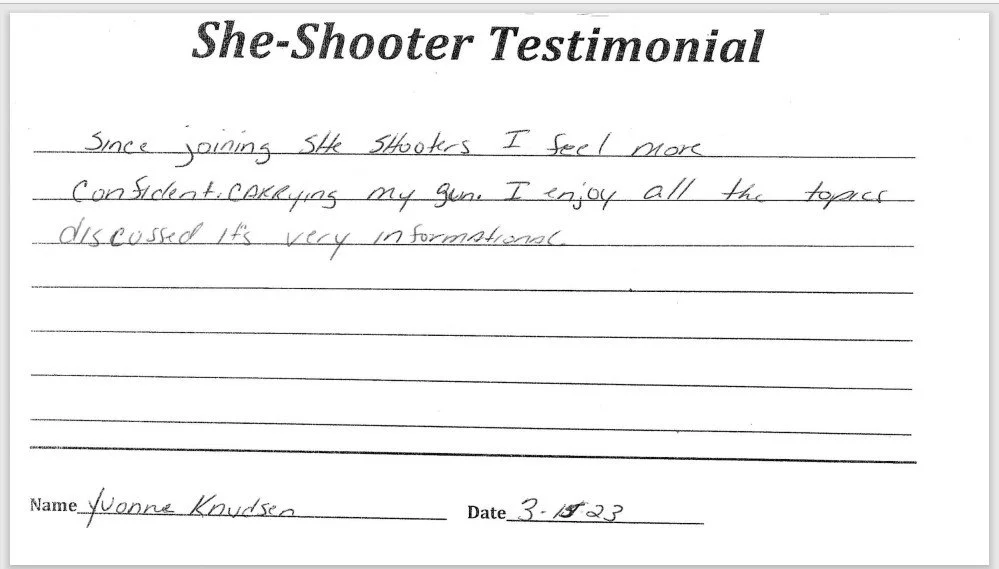 She-Shooter Testimonial
Since joining SHe SHooters I feel more
Confident. CARRying my gun. I enjoy all the topics
discussed it's very informational
Name Yvonne Knudsen
Date 3- 23